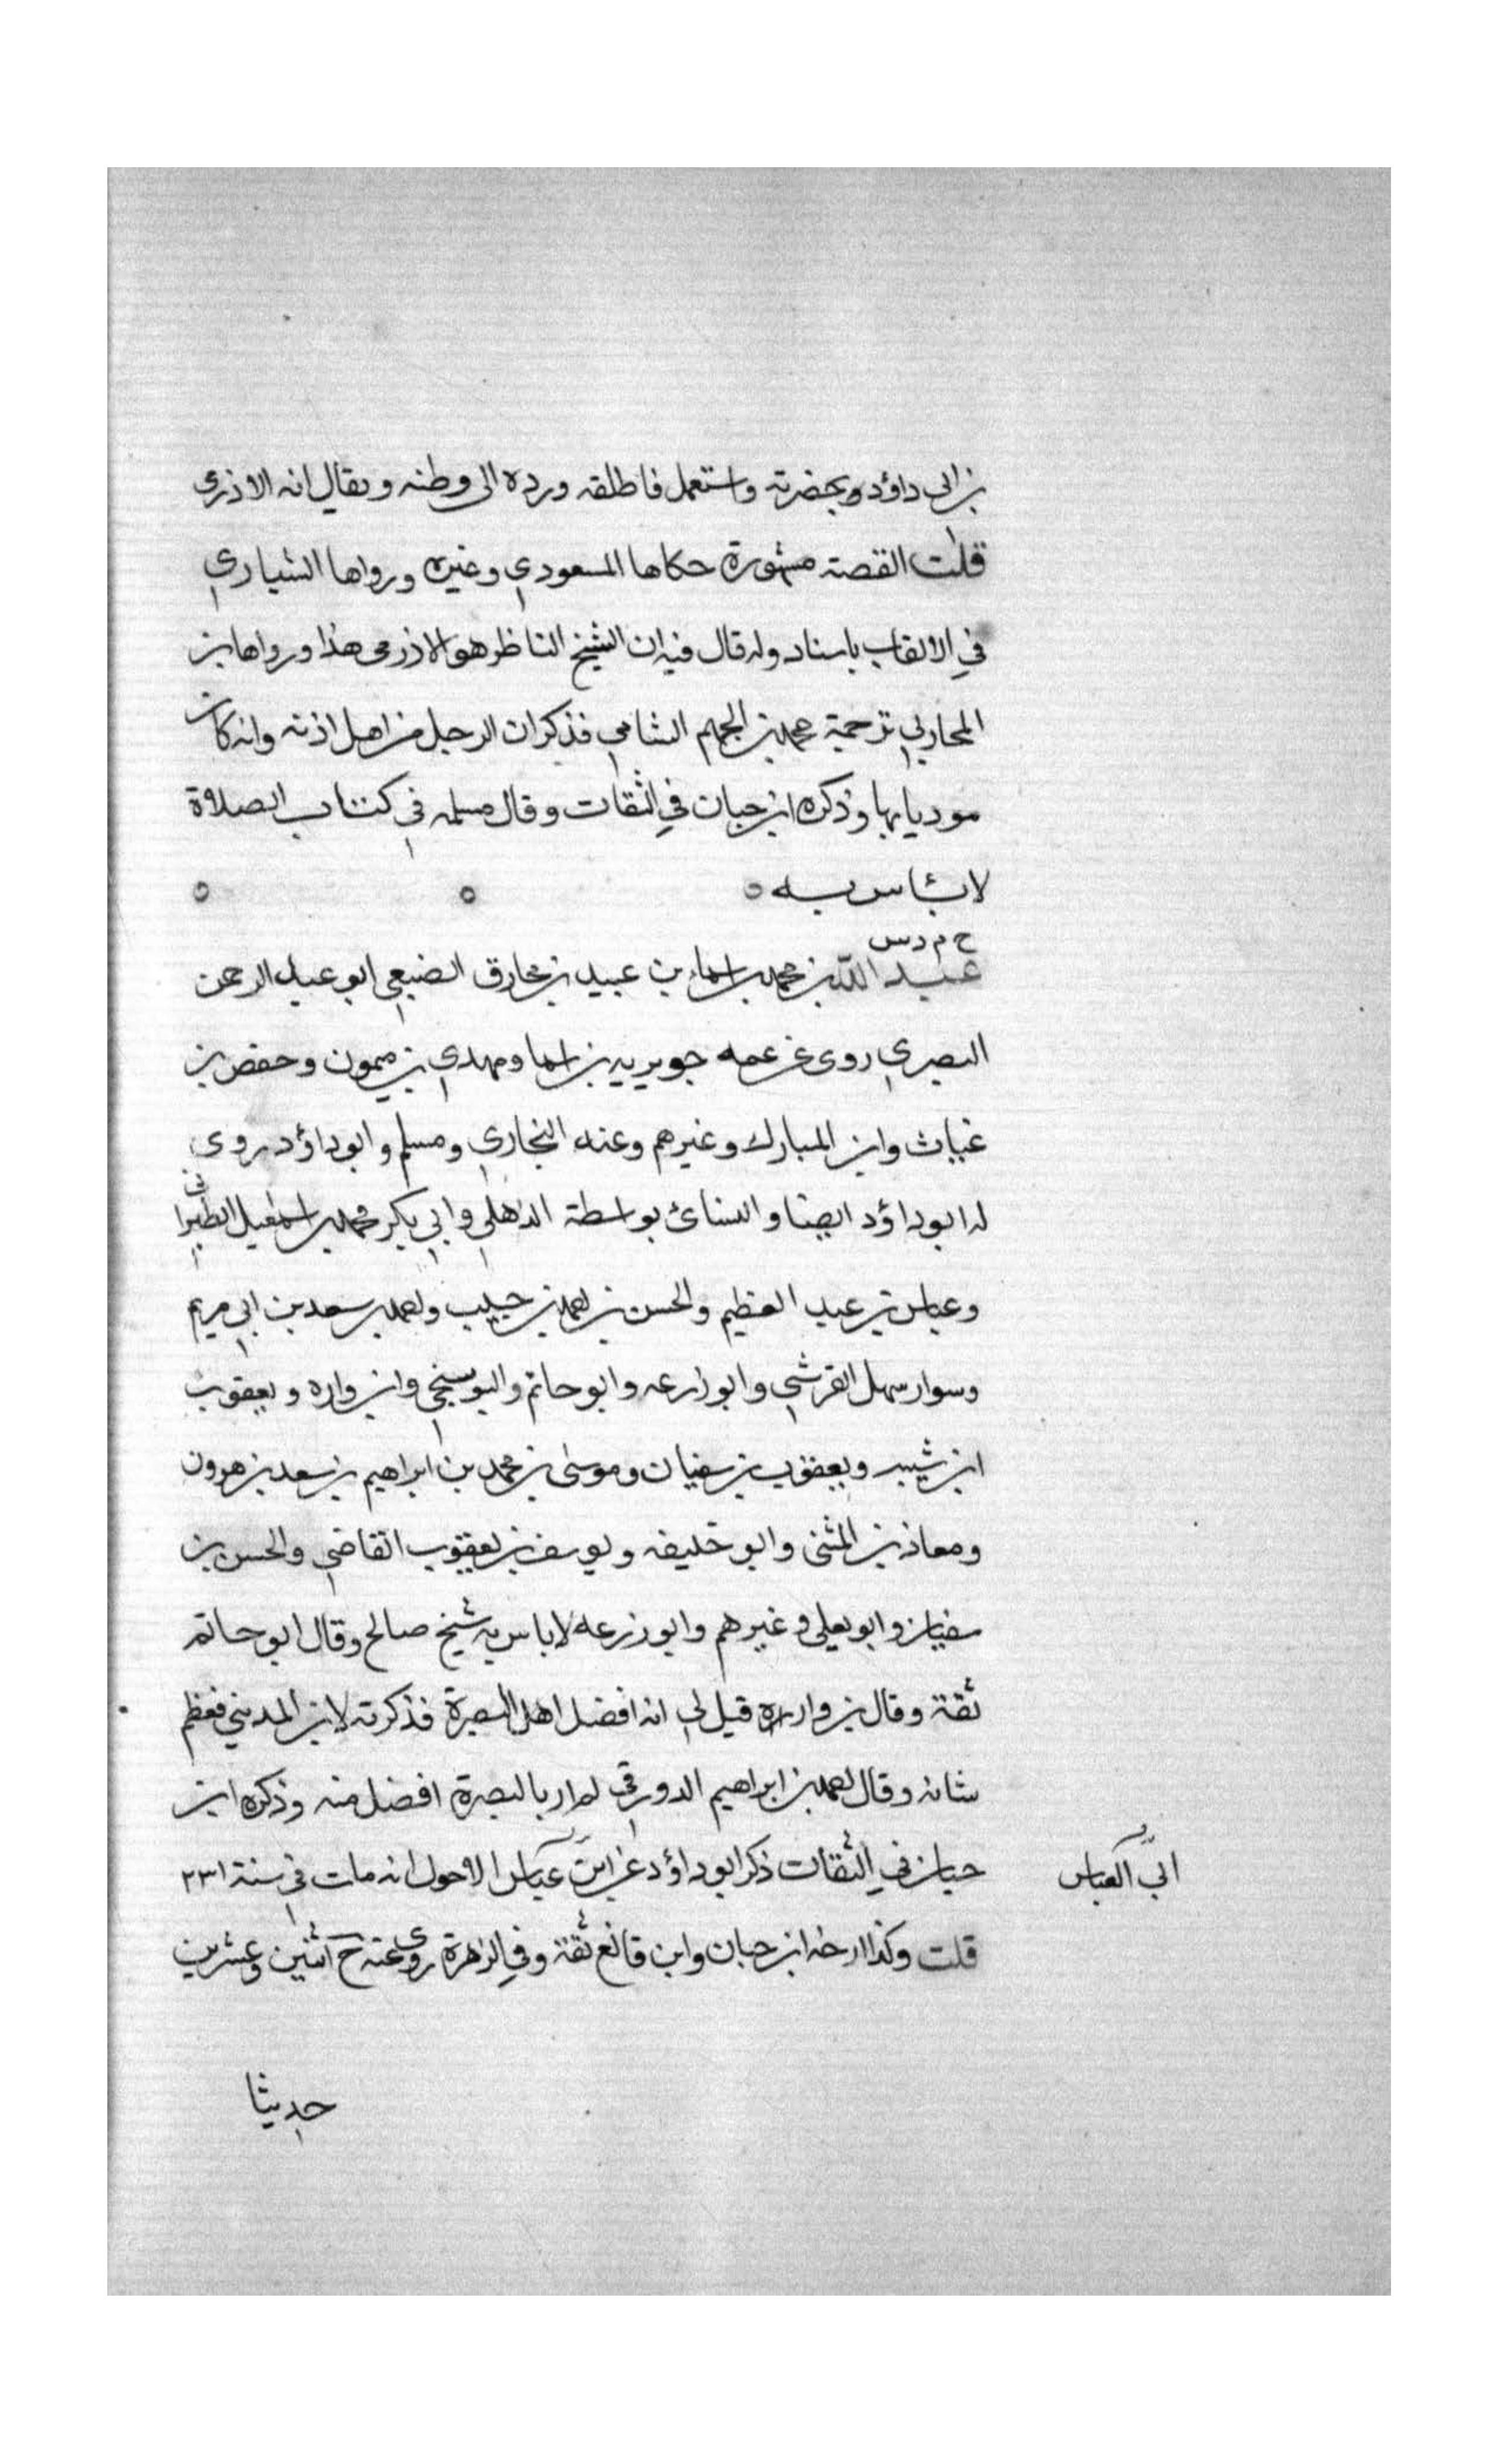 بن ابى داؤد وبحضرته واستعمل فاطلقه ورده الى وطنه ويقال انه الاذرى
قلت القصة مشهورة حكاها المسعودي وغيره ورواها الشيارى
في الالقاب باسناد وله قال فيه ان الشيخ الناظر هو الاذرمى هذا ورواها بن
المحاربي ترجمة محمد بن الجهم الشامي فذكر ان الرجل من اهل اذنه وانه كان
موديا بها وذكره ابن حبان في الثقات وقال مسلمه في كتاب الصلاة
لا بئاس به ه ه ه
خ م د س
عبد الله بن محمد بن اسماء بن عبيد بن مخارق الضبعي ابو عبد الرحمن
البصري روى عن عمه جويريه بن اسما ومهدي بن ميمون وحفص بن
غياث وابن المبارك وغيرهم وعنه البخاري ومسلم وابو داؤد روى
له ابو داؤد ايضا والنسائ بواسطة الذهلي وابي بكر محمد بن اسمعيل الطبرانى
وعباس بن عبد العظيم والحسن بن احمد بن حبيب واحمد بن سعد بن ابي مريم
وسوار سهل القرشي وابو زرعه وابو حاتم والبوسنجي وابن واره ويعقوب
ابن شيبه ويعقوب بن سفيان وموسى بن محمد بن ابراهيم بن سعد بن هرون
ومعاذ بن المثنى وابو خليفه ويوسف بن يعقوب القاضي والحسن بن
سفيان وابو يعلى وغيرهم وابو زرعه لا باس به شيخ صالح وقال ابو حاتم
ثقة وقال بن واره قيل لي انه افضل اهل البصرة فذكرته لابن المديني فعظم
شانه وقال احمد بن ابراهيم الدورقي لم ار بالبصرة افضل منه وذكره ابن
حبان في الثقات ذكر ابو داؤد عن ابن عباس الاحول انه مات في سنة ٢٣١
ابي العباس
قلت وكذا ارخه ابن حبان وابن قانع ثقة وفي الزهرة روى عنه خ اثنين وعشرين
حديثا